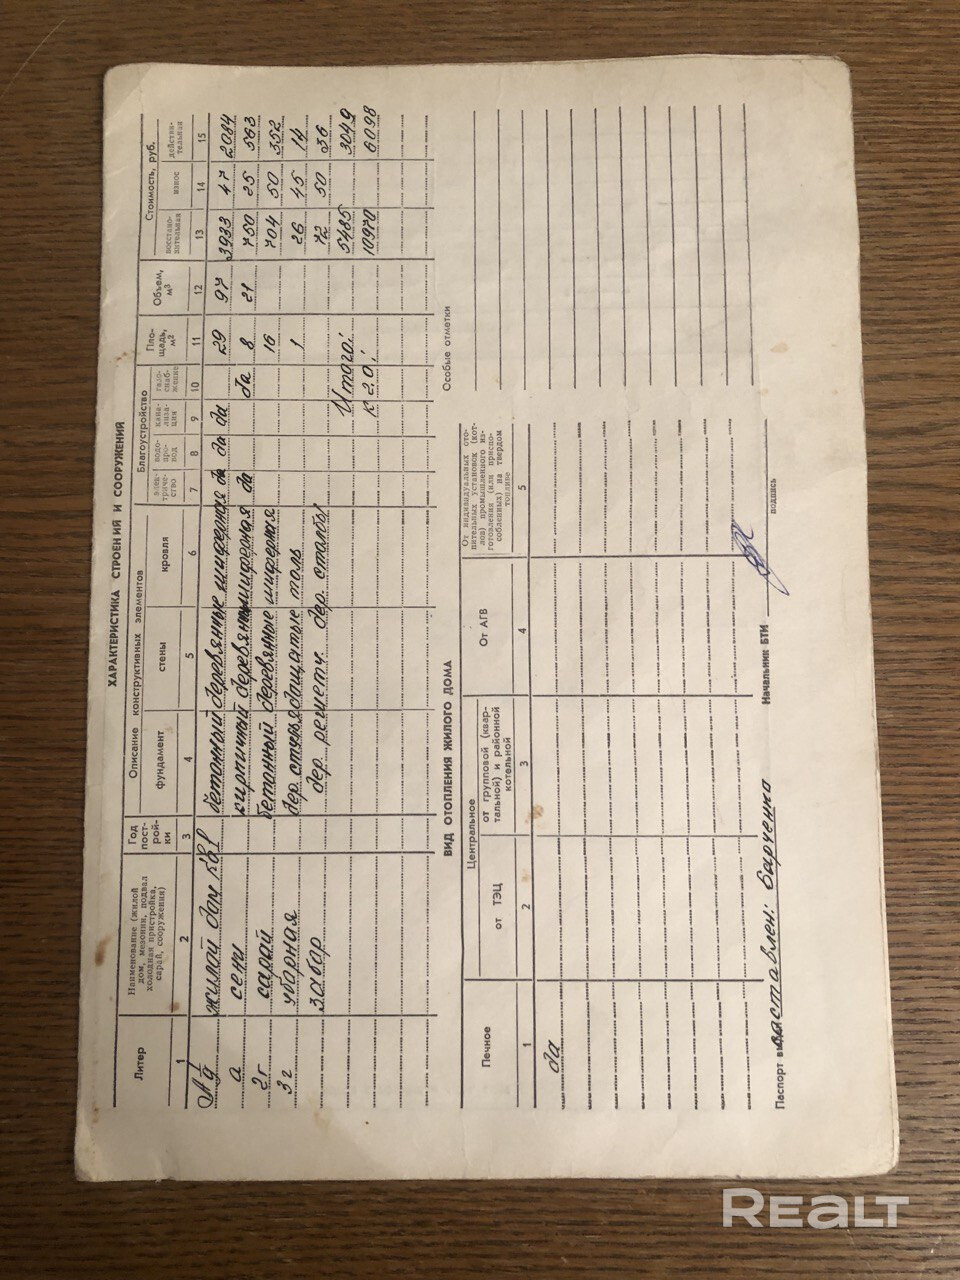 ХАРАКТЕРИСТИКА СТРОЕНИЯ И СООРУЖЕНИЯ
Литер
Наименование (жилой дом, мезонин, подвал холодная пристройка, сарай, сооружения)
Год пост- рой- ки
Описание конструктивных элементов
фундамент
стены
кровля
Благоустройство
элек- триче- ство
водо- про- вод
кана- лиза- ция
газо- снаб- жение
Пло- щадь, м²
Объем, м³
Стоимость, руб.
восстано- вительная
износ
действи- тельная
1 2 3 4 5 6 7 8 9 10 11 12 13 14 15
жилой дом бетонный деревянные шиферная да да да 29 97 3933 47 2084
а сени кирпичный шиферная да да 8 21 750 25 563
2г сарай бетонный деревянные шиферная 16 704 50 352
3г уборная толь 1 26 45 14
забор дер. решетч. дер. столбы 72 50 36
Итого: 5485 3049
к 2.0: 10970 6098
ВИД ОТОПЛЕНИЯ ЖИЛОГО ДОМА
Особые отметки
Печное
Центральное
от ТЭЦ
от групповой (квар- тальной) и районной котельной
От АГВ
От индивидуальных ото- пительных установок (кот- лов) промышленного из- готовления (или приспо- собленных) на твердом топливе
1 2 3 4 5
да
Паспорт составлен: Барченко
Начальник БТИ
подпись
REALT